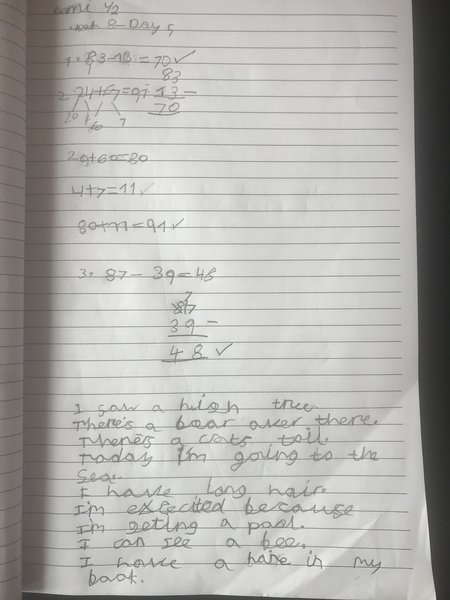 1/2
Week 8 - Day 5
1. 83-13=70✓
83
2. 24+67=91 13 -
70
20 4 60 7
20+60=80
4+7=11✓
80+11=91✓
3. 87- 39=48
7
87
39 -
48 ✓
I saw a high tree.
There's a bear over there.
There's a cats tail.
Today I'm going to the
Sea.
I have long hair.
I'm excited because
I'm geting a pool.
I can see a bee.
I have a hare in my
book.